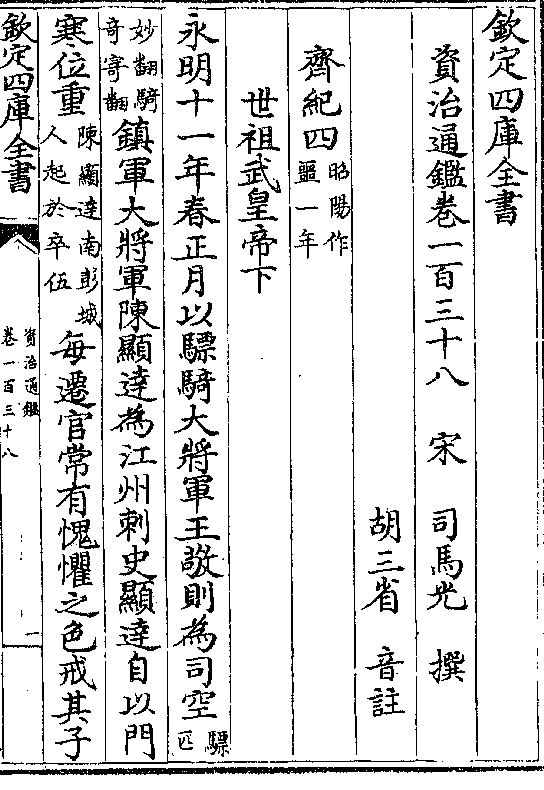 欽定四庫全書
資治通鑑卷一百三十八　宋　司馬光　撰
胡三省　音註
齊紀四昭陽作噩一年
世祖武皇帝下
永明十一年春正月以驃騎大將軍王敬則為司空驃匹
妙翻騎奇寄翻鎮軍大將軍陳顯達為江州刺史顯達自以門
寒位重陳顯達南彭城人起於卒伍每遷官常有愧懼之色戒其子
欽定四庫全書
資治通鑑
卷一百三十八
一